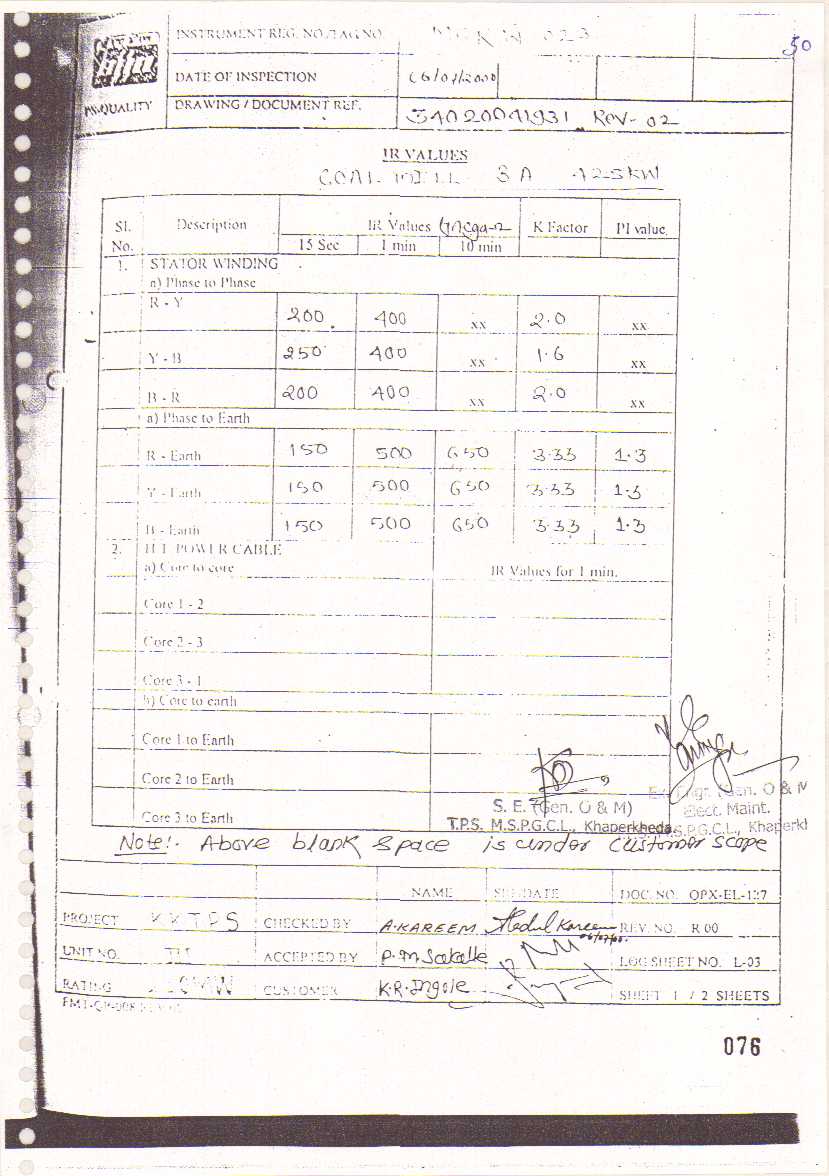 50
INSTRUMENT REG. NO./TAG NO. 023
DATE OF INSPECTION 06/07/2000
PS-QUALITY DRAWING / DOCUMENT REF. 34020041931 REV-02
IR VALUES
COAL MILL 3A 425KW
Sl. No. Description IR Values (Mega-Ω) K Factor PI value
15 Sec 1 min 10 min
1. STATOR WINDING
a) Phase to Phase
R - Y 200 400 xx 2.0 xx
Y - B 250 400 xx 1.6 xx
B - R 200 400 xx 2.0 xx
a) Phase to Earth
R - Earth 150 500 650 3.33 1.3
Y - Earth 150 500 650 3.33 1.3
B - Earth 150 500 650 3.33 1.3
2. H.T. POWER CABLE
a) Core to core IR Values for 1 min.
Core 1 - 2
Core 2 - 3
Core 3 - 1
b) Core to earth
Core 1 to Earth
Core 2 to Earth
Core 3 to Earth
S. E. (Gen. O & M)
T.P.S. M.S.P.G.C.L., Khaperkheda
Engr. (Gen. O & M
Elect. Maint.
M.S.P.G.C.L., Khaperkh
Note:- Above blank space is under customer scope
NAME SIGN/DATE DOC. NO. OPX-EL-127
PROJECT KKTPS CHECKED BY A.KAREEM Abdul Kareem REV. NO. R 00
UNIT NO. III ACCEPTED BY P.M. LOG SHEET NO. L-03
RATING MW CUSTOMER K.R. Ingole SHEET 1 / 2 SHEETS
076